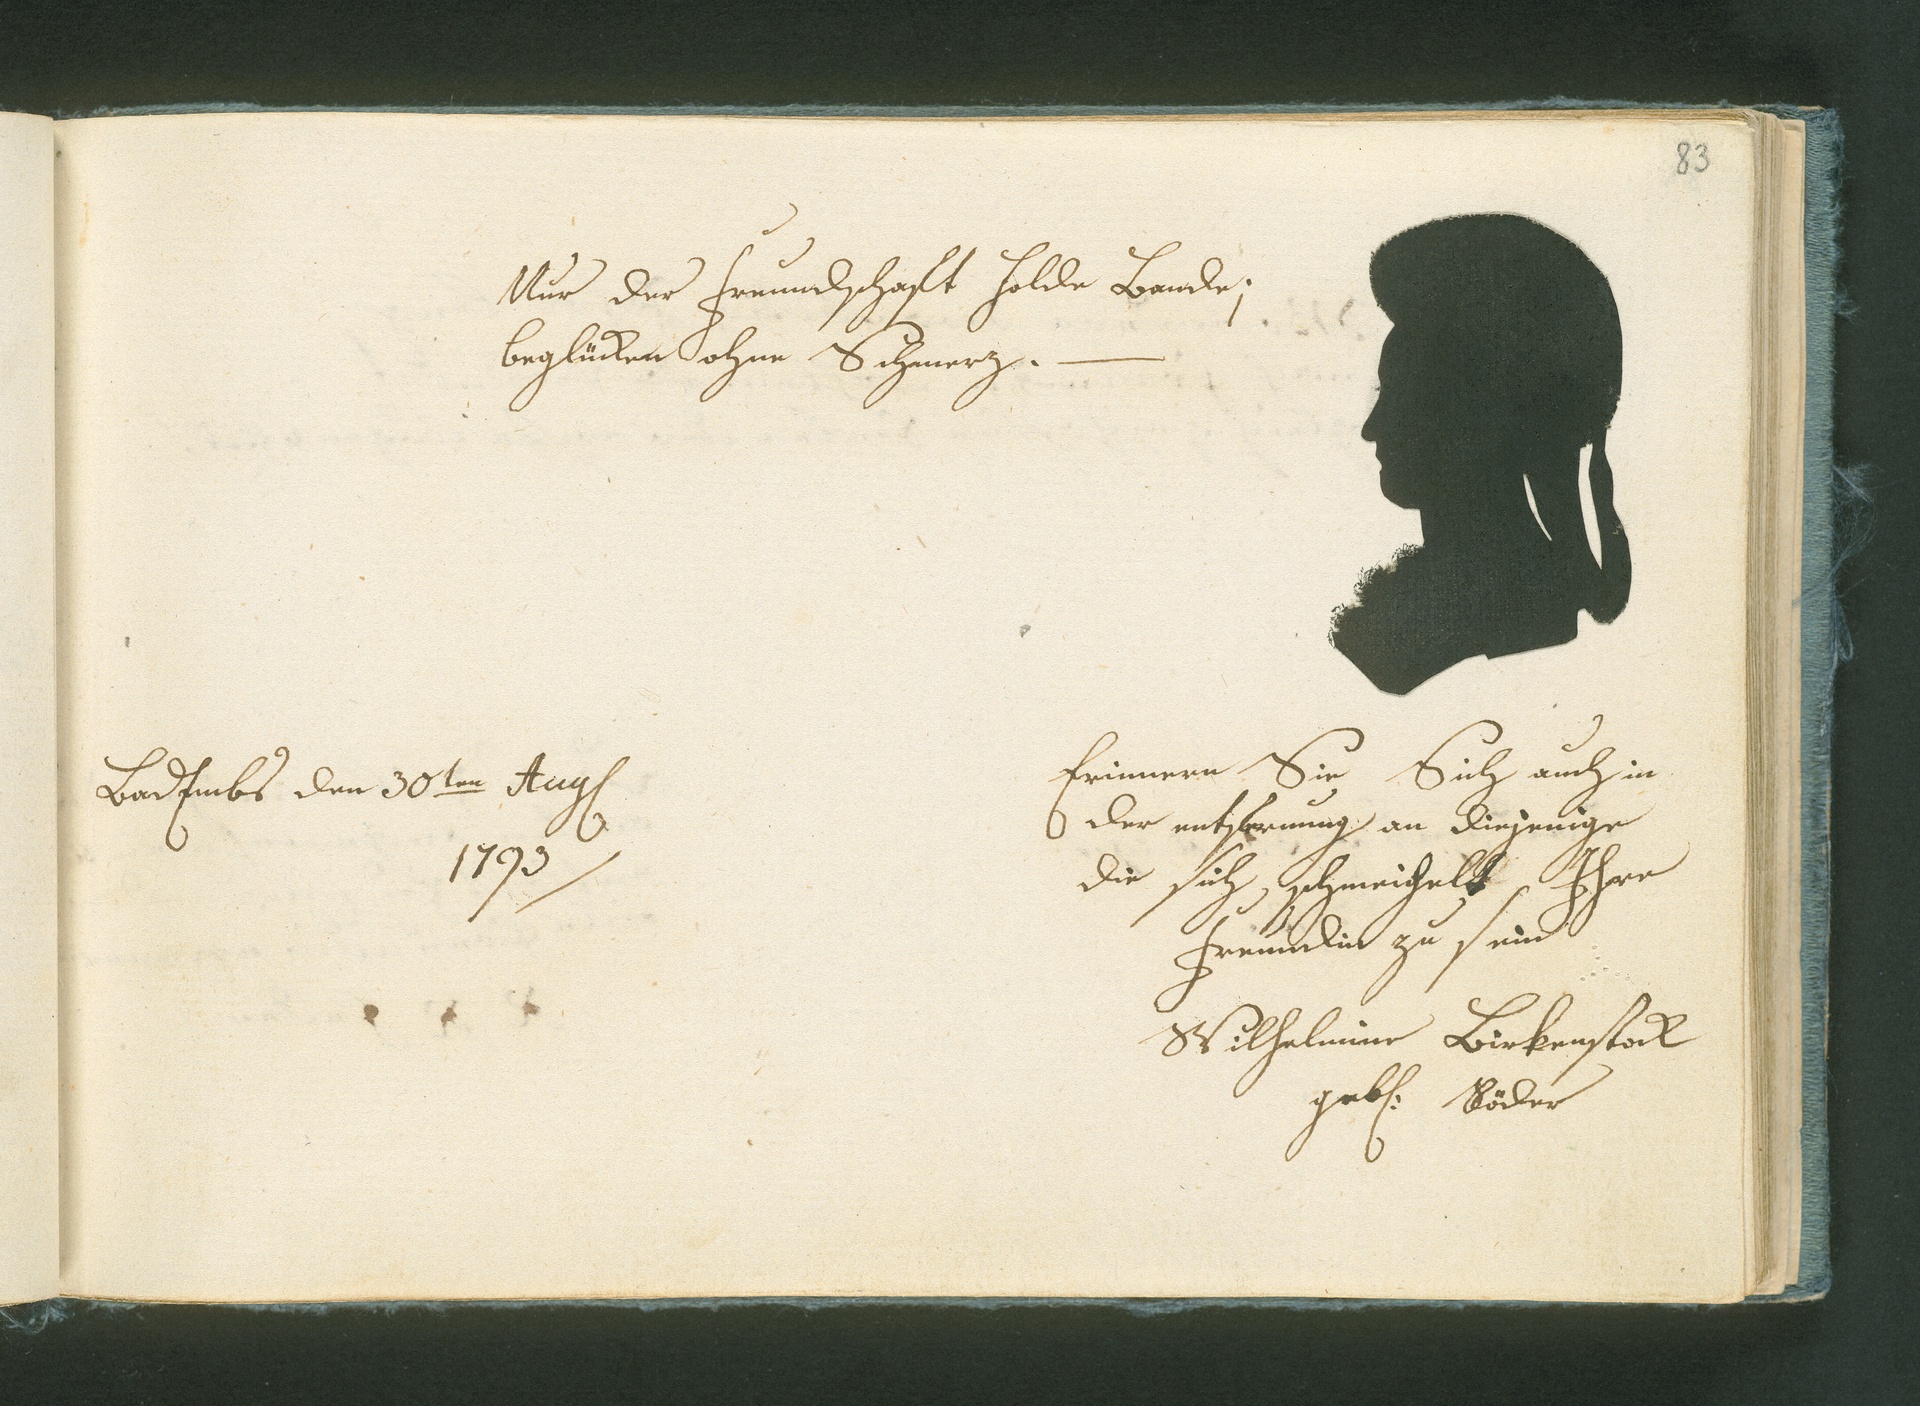 83
Nur der Freundschaft holde Bande;
beglücken ohne Schmerz. —
Bad Embs den 30ten Aug
1793
Erinnern Sie Sich auch in
der entfernung an diejenige
die sich schmeichelt Ihre
Freundin zu sein
Wilhelmine Birkenstock
geb: Röder